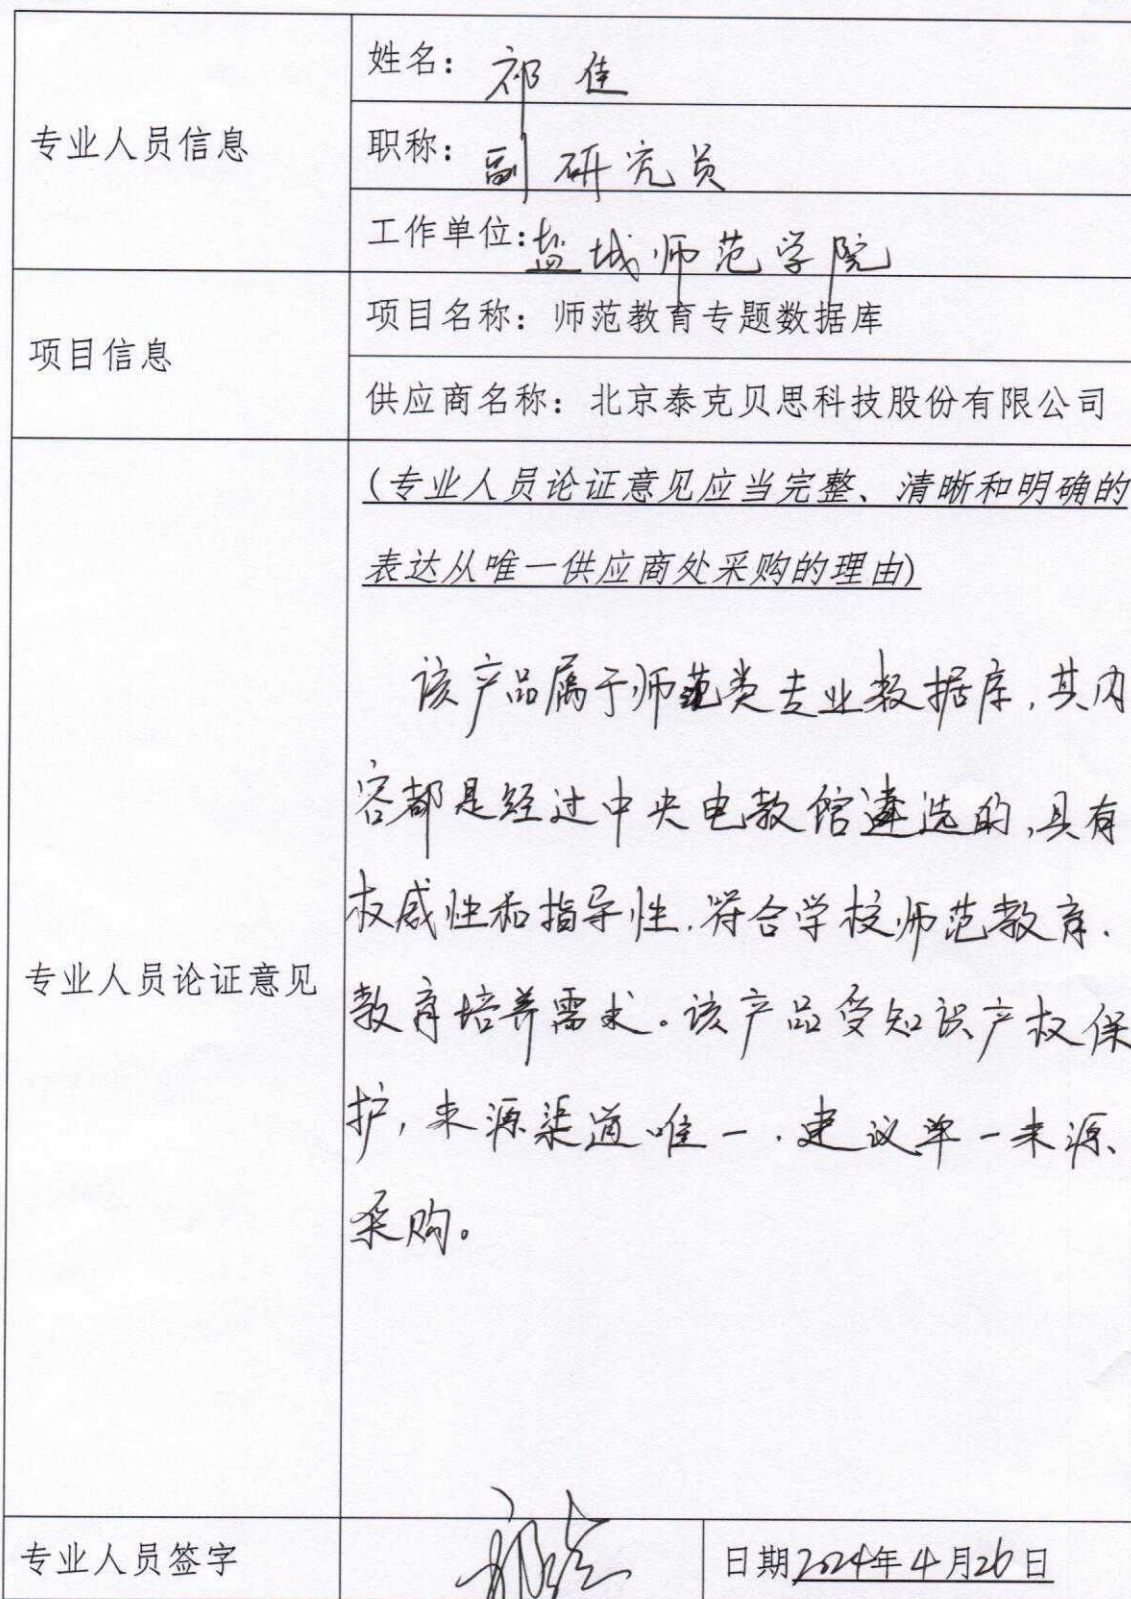 专业人员信息
姓名：祁佳
职称：副研究员
工作单位：盐城师范学院
项目信息
项目名称：师范教育专题数据库
供应商名称：北京泰克贝思科技股份有限公司
专业人员论证意见
（专业人员论证意见应当完整、清晰和明确的
表达从唯一供应商处采购的理由）
该产品属于师范类专业数据库，其内
容都是经过中央电教馆遴选的，具有
权威性和指导性，符合学校师范教育、
教育培养需求。该产品受知识产权保
护，来源渠道唯一，建议单一来源
采购。
专业人员签字
日期2024年4月26日